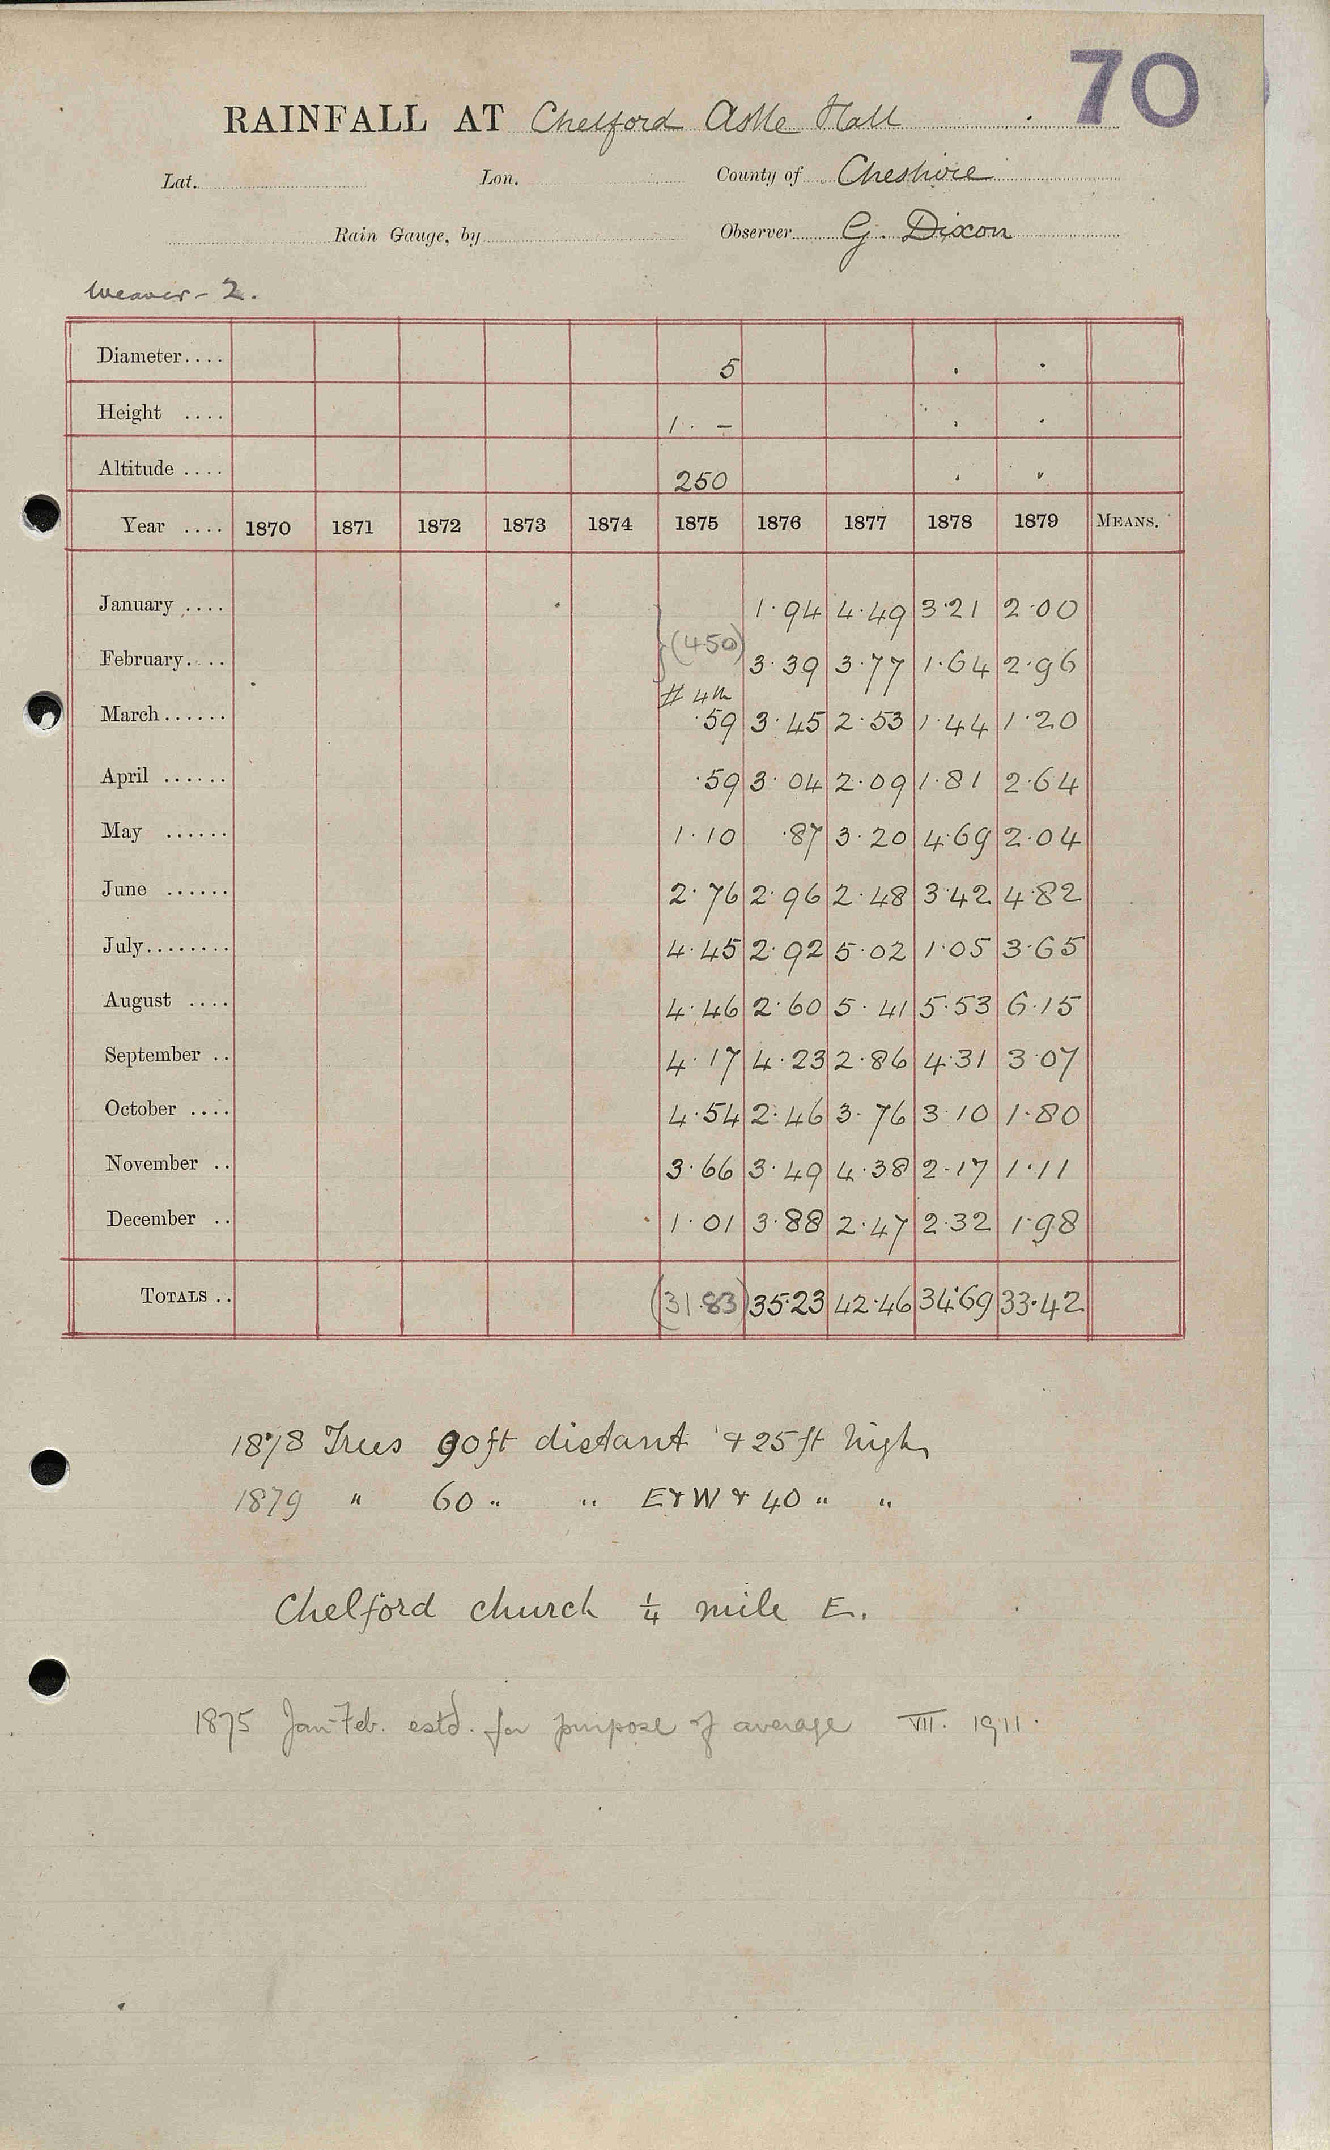 70
RAINFALL AT Chelford Astle Hall
Lat. Lon. County of Cheshire
Rain Gauge, by Observer G. Dixon
Weaver - 2.
Diameter.... 5
Height .... 1 · –
Altitude .... 250
Year .... 1870 1871 1872 1873 1874 1875 1876 1877 1878 1879 MEANS.
January .... 1·94 4·49 3·21 2·00
(450)
February.... 3·39 3·77 1·64 2·96
# 4th
March...... ·59 3·45 2·53 1·44 1·20
April ...... ·59 3·04 2·09 1·81 2·64
May ...... 1·10 ·87 3·20 4·69 2·04
June ...... 2·76 2·96 2·48 3·42 4·82
July........ 4·45 2·92 5·02 1·05 3·65
August .... 4·46 2·60 5·41 5·53 6·15
September .. 4·17 4·23 2·86 4·31 3·07
October .... 4·54 2·46 3·76 3·10 1·80
November .. 3·66 3·49 4·38 2·17 1·11
December .. 1·01 3·88 2·47 2·32 1·98
TOTALS .. (31·83) 35·23 42·46 34·69 33·42
1878 Trees 90ft distant & 25 ft high
1879 " 60 " " E & W & 40 " "
Chelford church ¼ mile E.
1875 Jan-Feb. estd. for purpose of average VII. 1911.